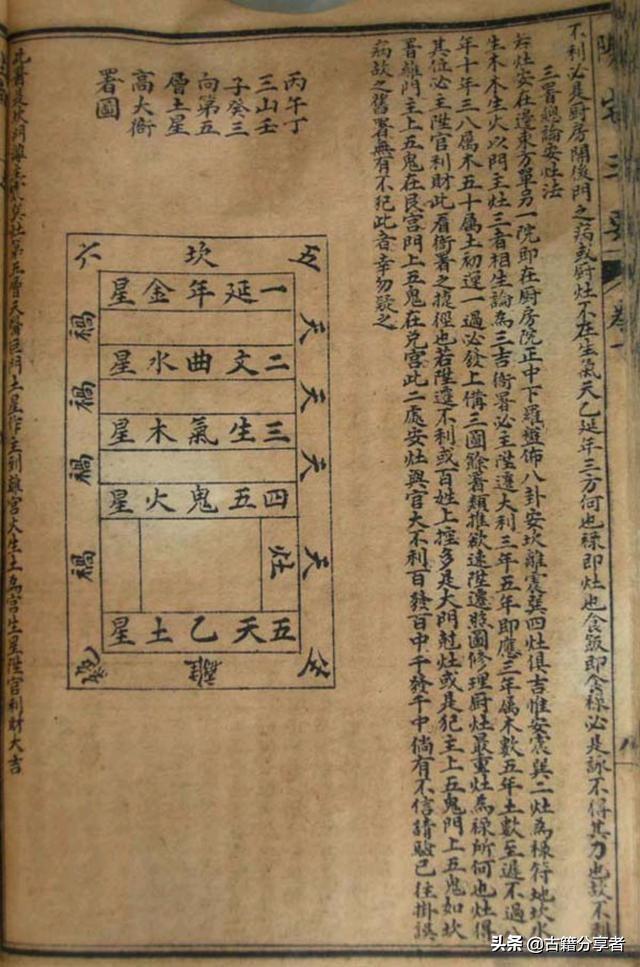 陽宅三要 卷一
不利必是厨房開後門之病或厨灶不在生氣天乙延年三方何也祿即灶也食飯即食祿必是詠不得其力也故不
三署總論安灶法
右灶安在邊東方單另一院即在厨房院正中下羅盤佈八卦安坎離震巽四灶俱吉惟安震巽二灶為祿符地坎水
生木木生火以門主灶三者相生論為三吉衙署必主陞遷大利三年五年即應三年屬木數五年土數至遲不過
年十年三八屬木五十屬土初運一過必發上偹三圖餘署類推欲速陞遷照圖修理厨灶最重灶為祿所何也灶得
其位必主陞官利財此看衙署之捷徑也若陞遷不利或百姓上控多是大門尅灶或是犯主上五鬼門上五鬼如坎
署離門主上五鬼在艮宮門上五鬼在兌宮此二處安灶與官大不利百發百中千發千中倘有不信請驗已往掛誤
病故之舊署無有不犯此者幸勿疑之
丙午丁
三山壬
子癸三
向第五
層土星
高大衙
署圖
六 坎 五
一延年金星
二文曲水星
三生氣木星
四五鬼火星
灶
五天乙土星
天
天
天
天
禍
禍
禍
禍
離
此署是坎門離主巽灶第五層天醫巨門土星作主到離宮火生土為宮生星陞官利財大吉
头条 @古籍分享者